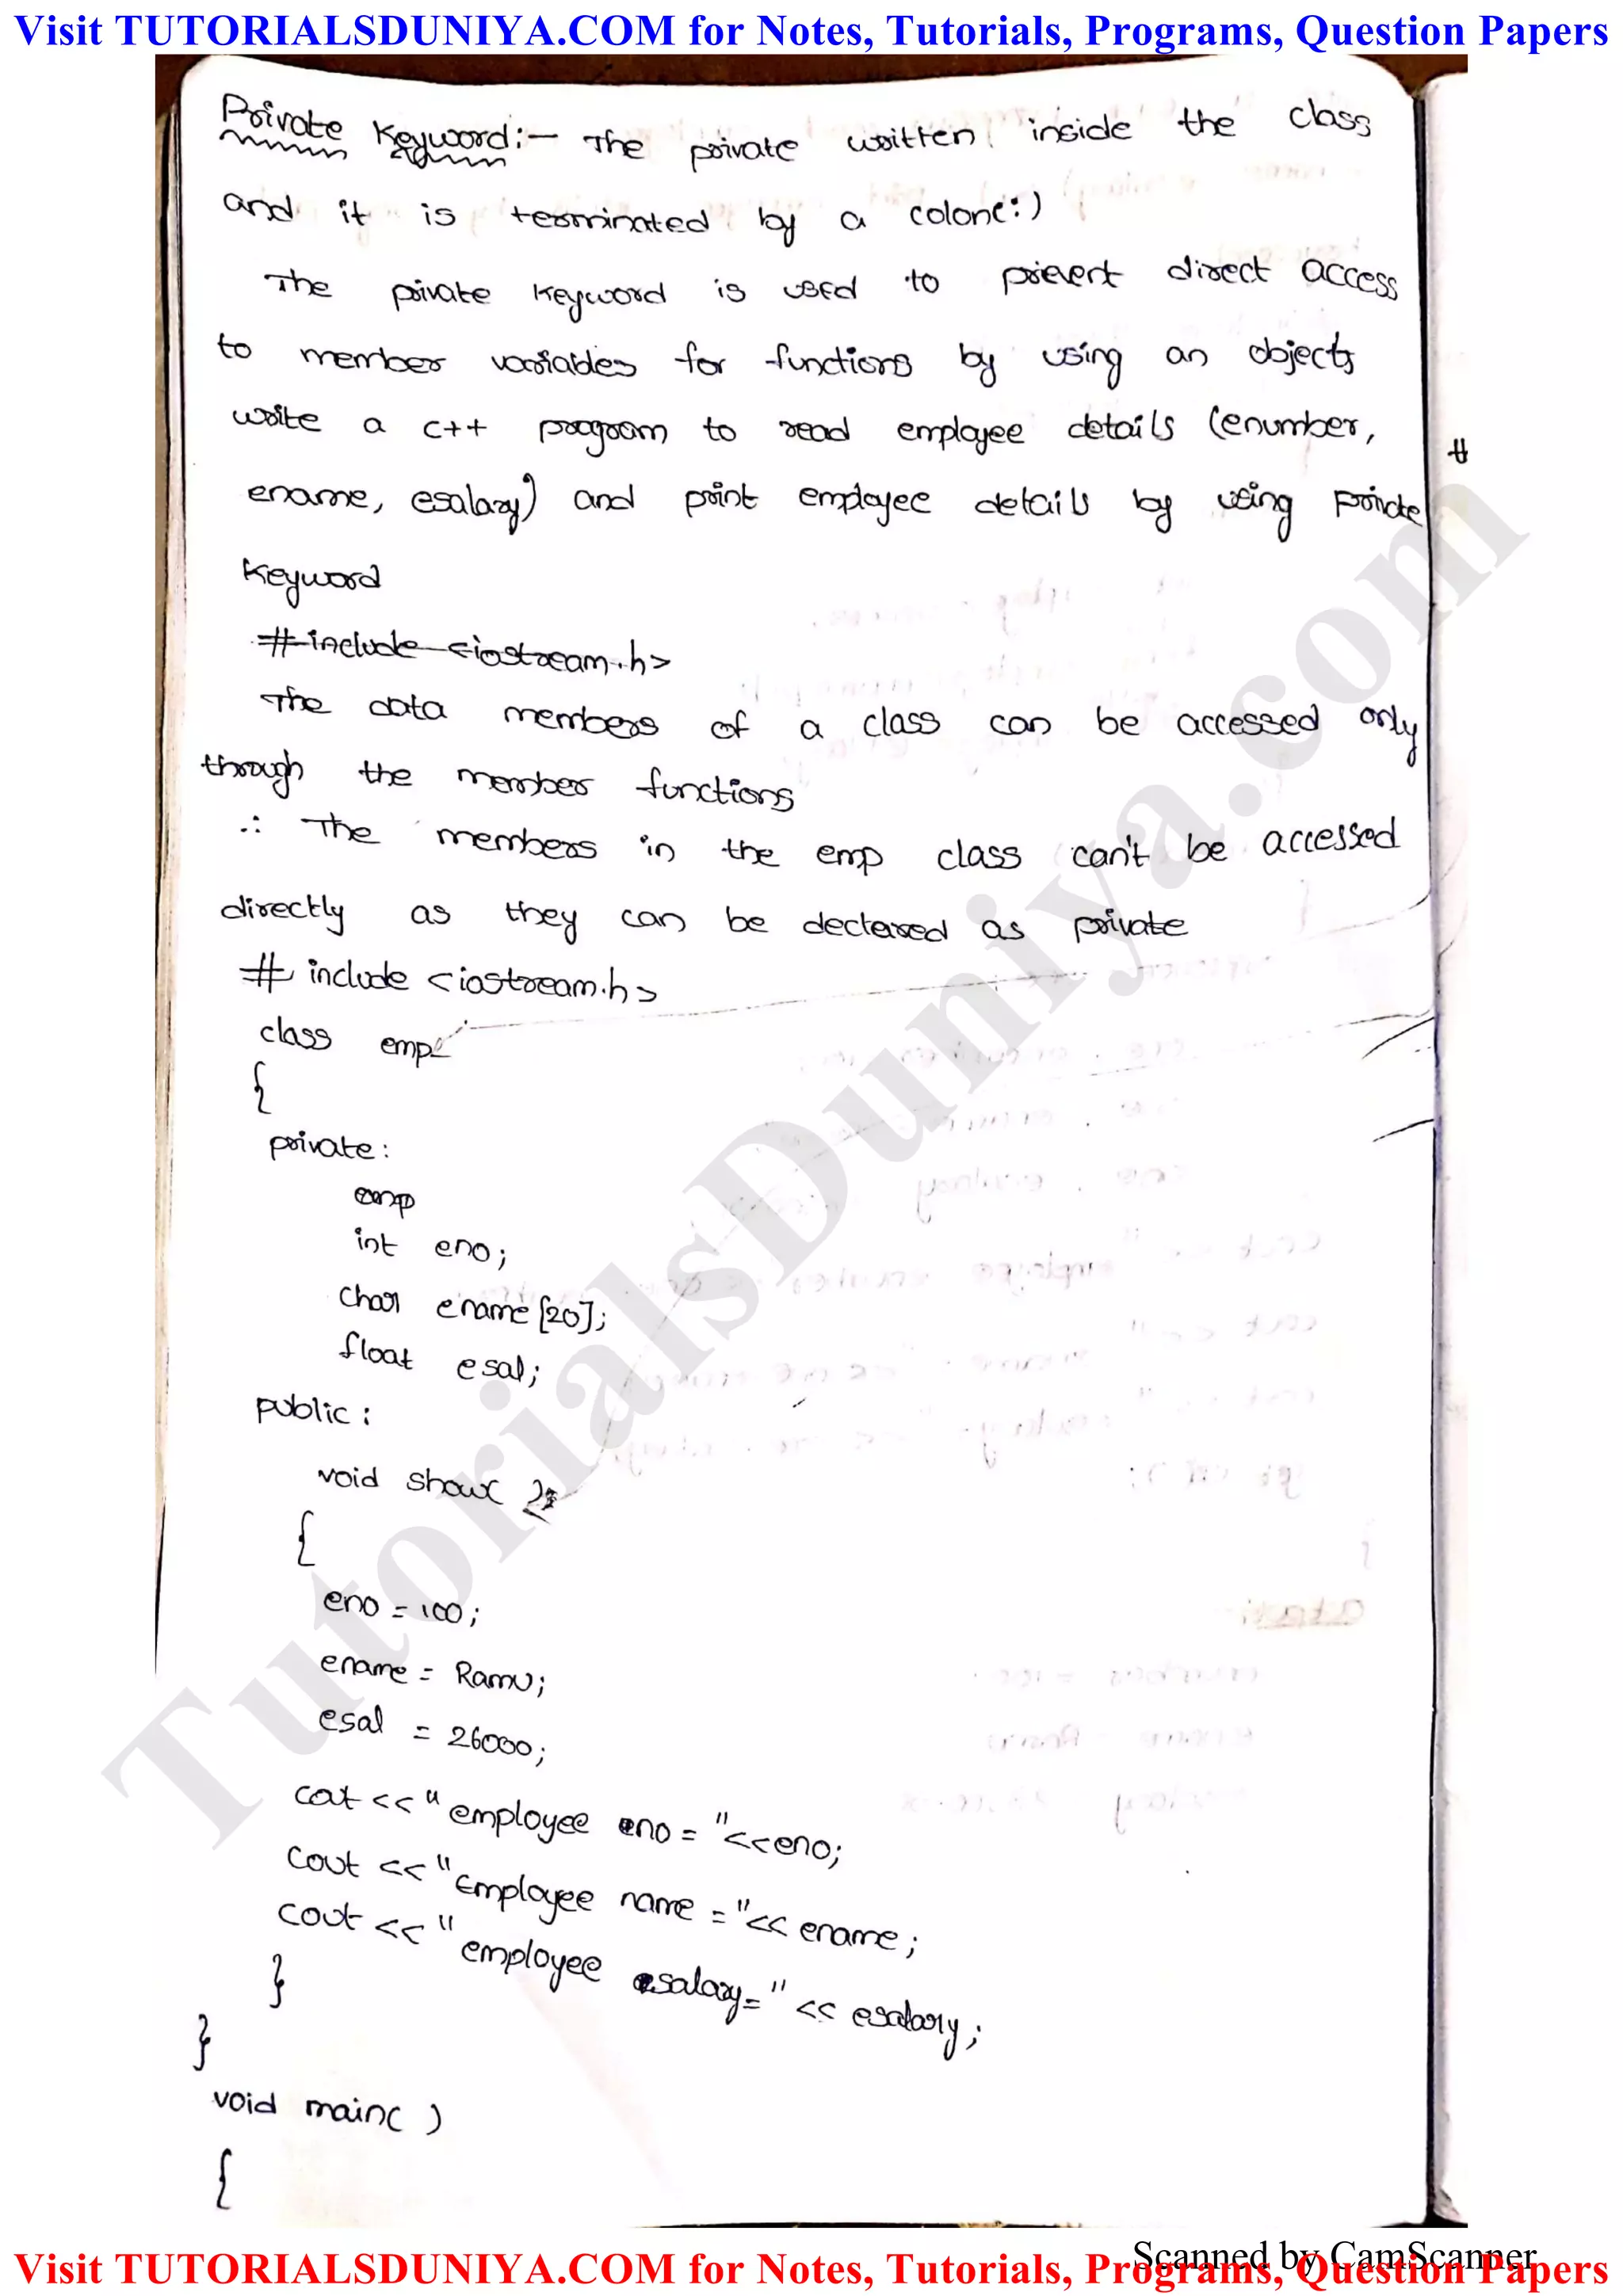 Visit TUTORIALSDUNIYA.COM for Notes, Tutorials, Programs, Question Papers
Private Keyword:- The private written inside the class
and it is terminated by a colon(:)
The private keyword is used to prievent direct access
to member variables for functions by using an objects
write a c++ program to read employee details (enumber,
ename, esalary) and print employee details by using private
keyword
#include <iostream.h>
The data members of a class can be accessed only
through the member functions
∴ The members in the emp class can't be accessed
directly as they can be declared as private
# include <iostream.h>
class emp
{
private:
emp
int eno;
char ename[20];
float esal;
public:
void show( )
{
eno = 100;
ename = Ramu;
esal = 26000;
cout << "employee eno = "<<eno;
cout << "Employee name = "<< ename;
cout << "employee esalary= " << esalary;
}
}
void main( )
{
#
TutorialsDuniya.com
Scanned by CamScanner
Visit TUTORIALSDUNIYA.COM for Notes, Tutorials, Programs, Question Papers